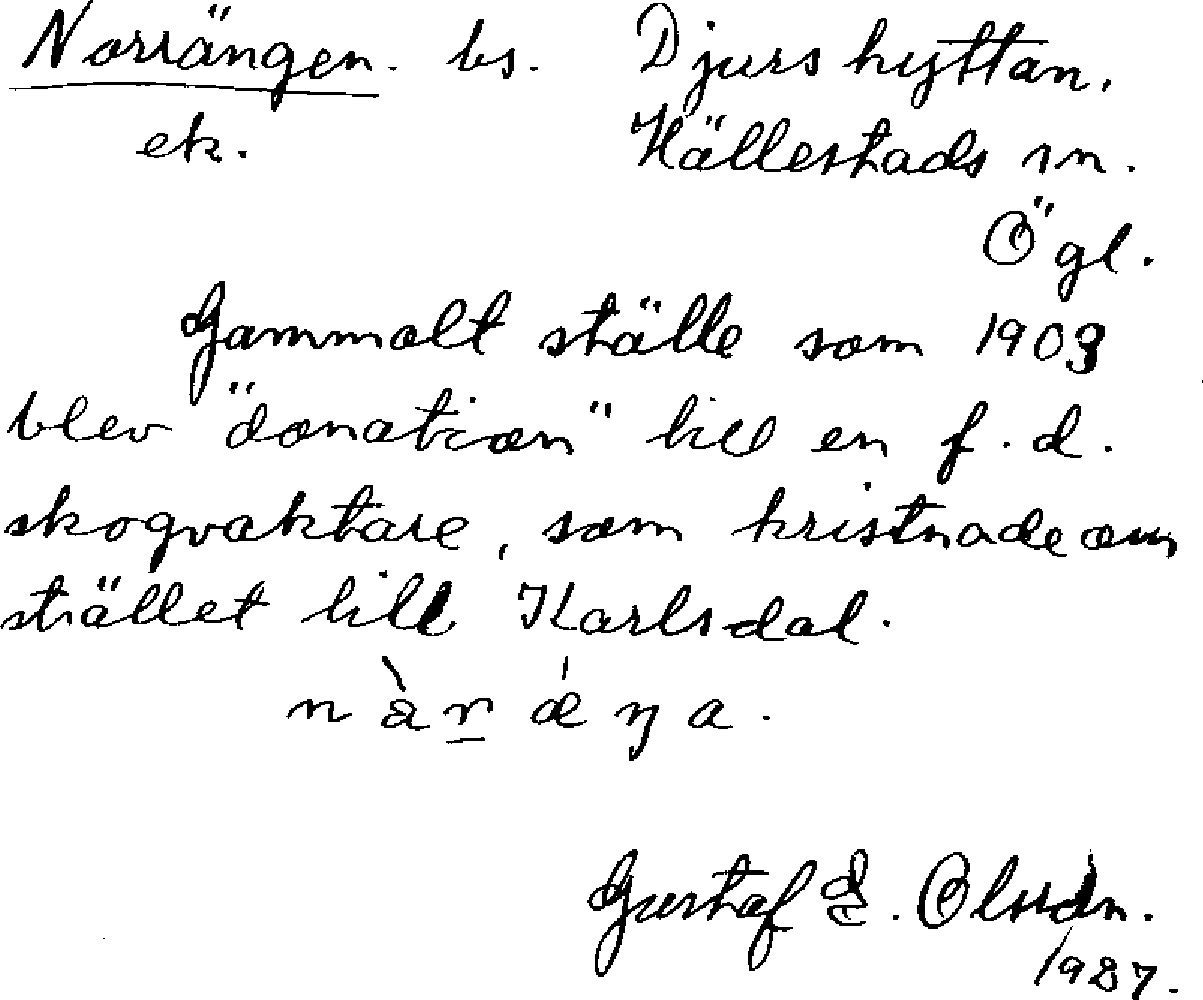 Norrängen. bs. Djurshyttan,
ek. Hällestads sn.
Ögl.
Gammalt ställe som 1903
blev "donation" till en f.d.
skogvaktare, som kristnade om
stället till Karlsdal.
n à r ǽ ŋ a.
Gustaf E. Olsson.
1937.